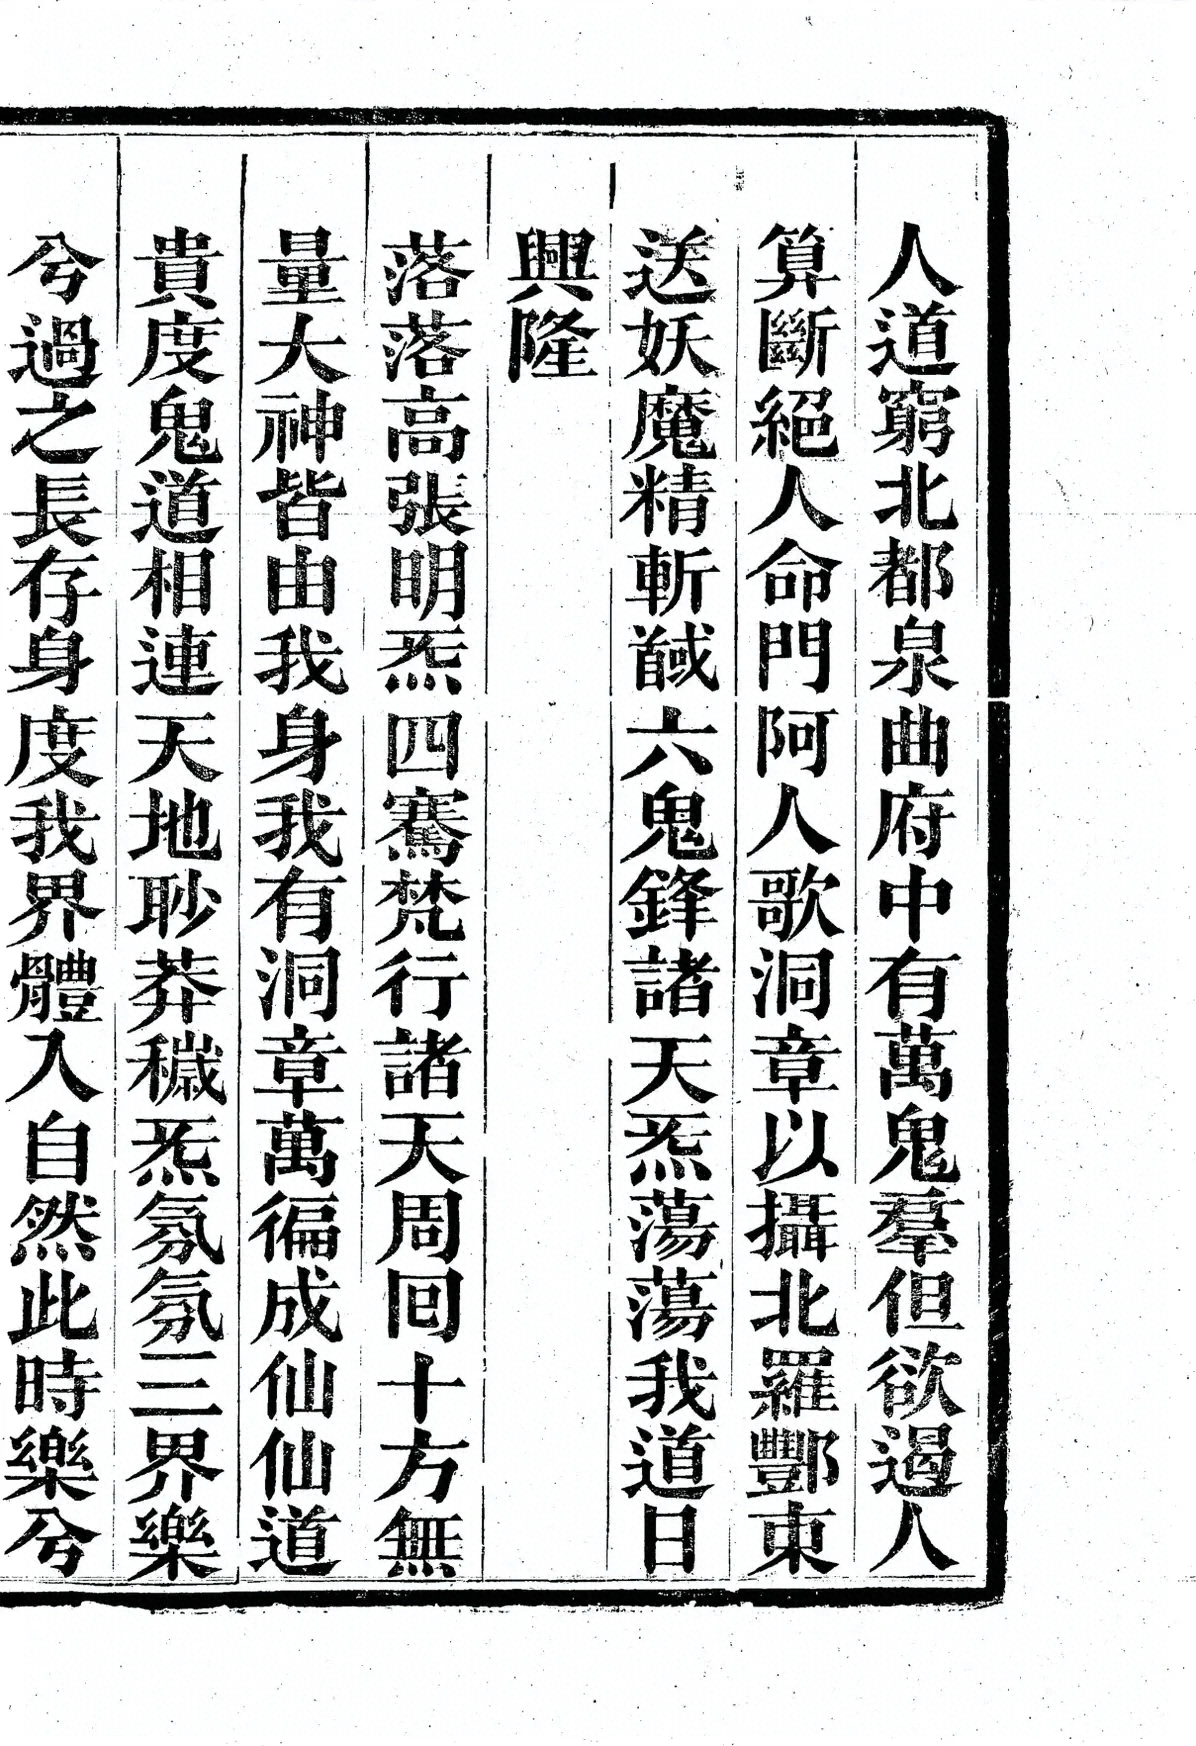 人道窮北都泉曲府中有萬鬼羣但欲遏人
算斷絕人命門阿人歌洞章以攝北羅酆束
送妖魔精斬馘六鬼鋒諸天炁蕩蕩我道日
興隆
落落高張明炁四騫梵行諸天周回十方無
量大神皆由我身我有洞章萬徧成仙仙道
貴度鬼道相連天地眇莽穢炁氛氛三界樂
兮過之長存身度我界體入自然此時樂兮